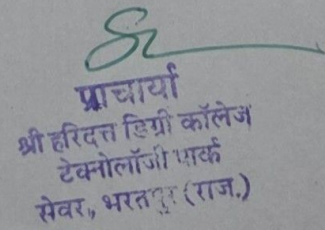 प्राचार्या
श्री हरिदत्त डिग्री कॉलेज
टेक्नोलॉजी पार्क
सेवर,, भरतपुर (राज.)